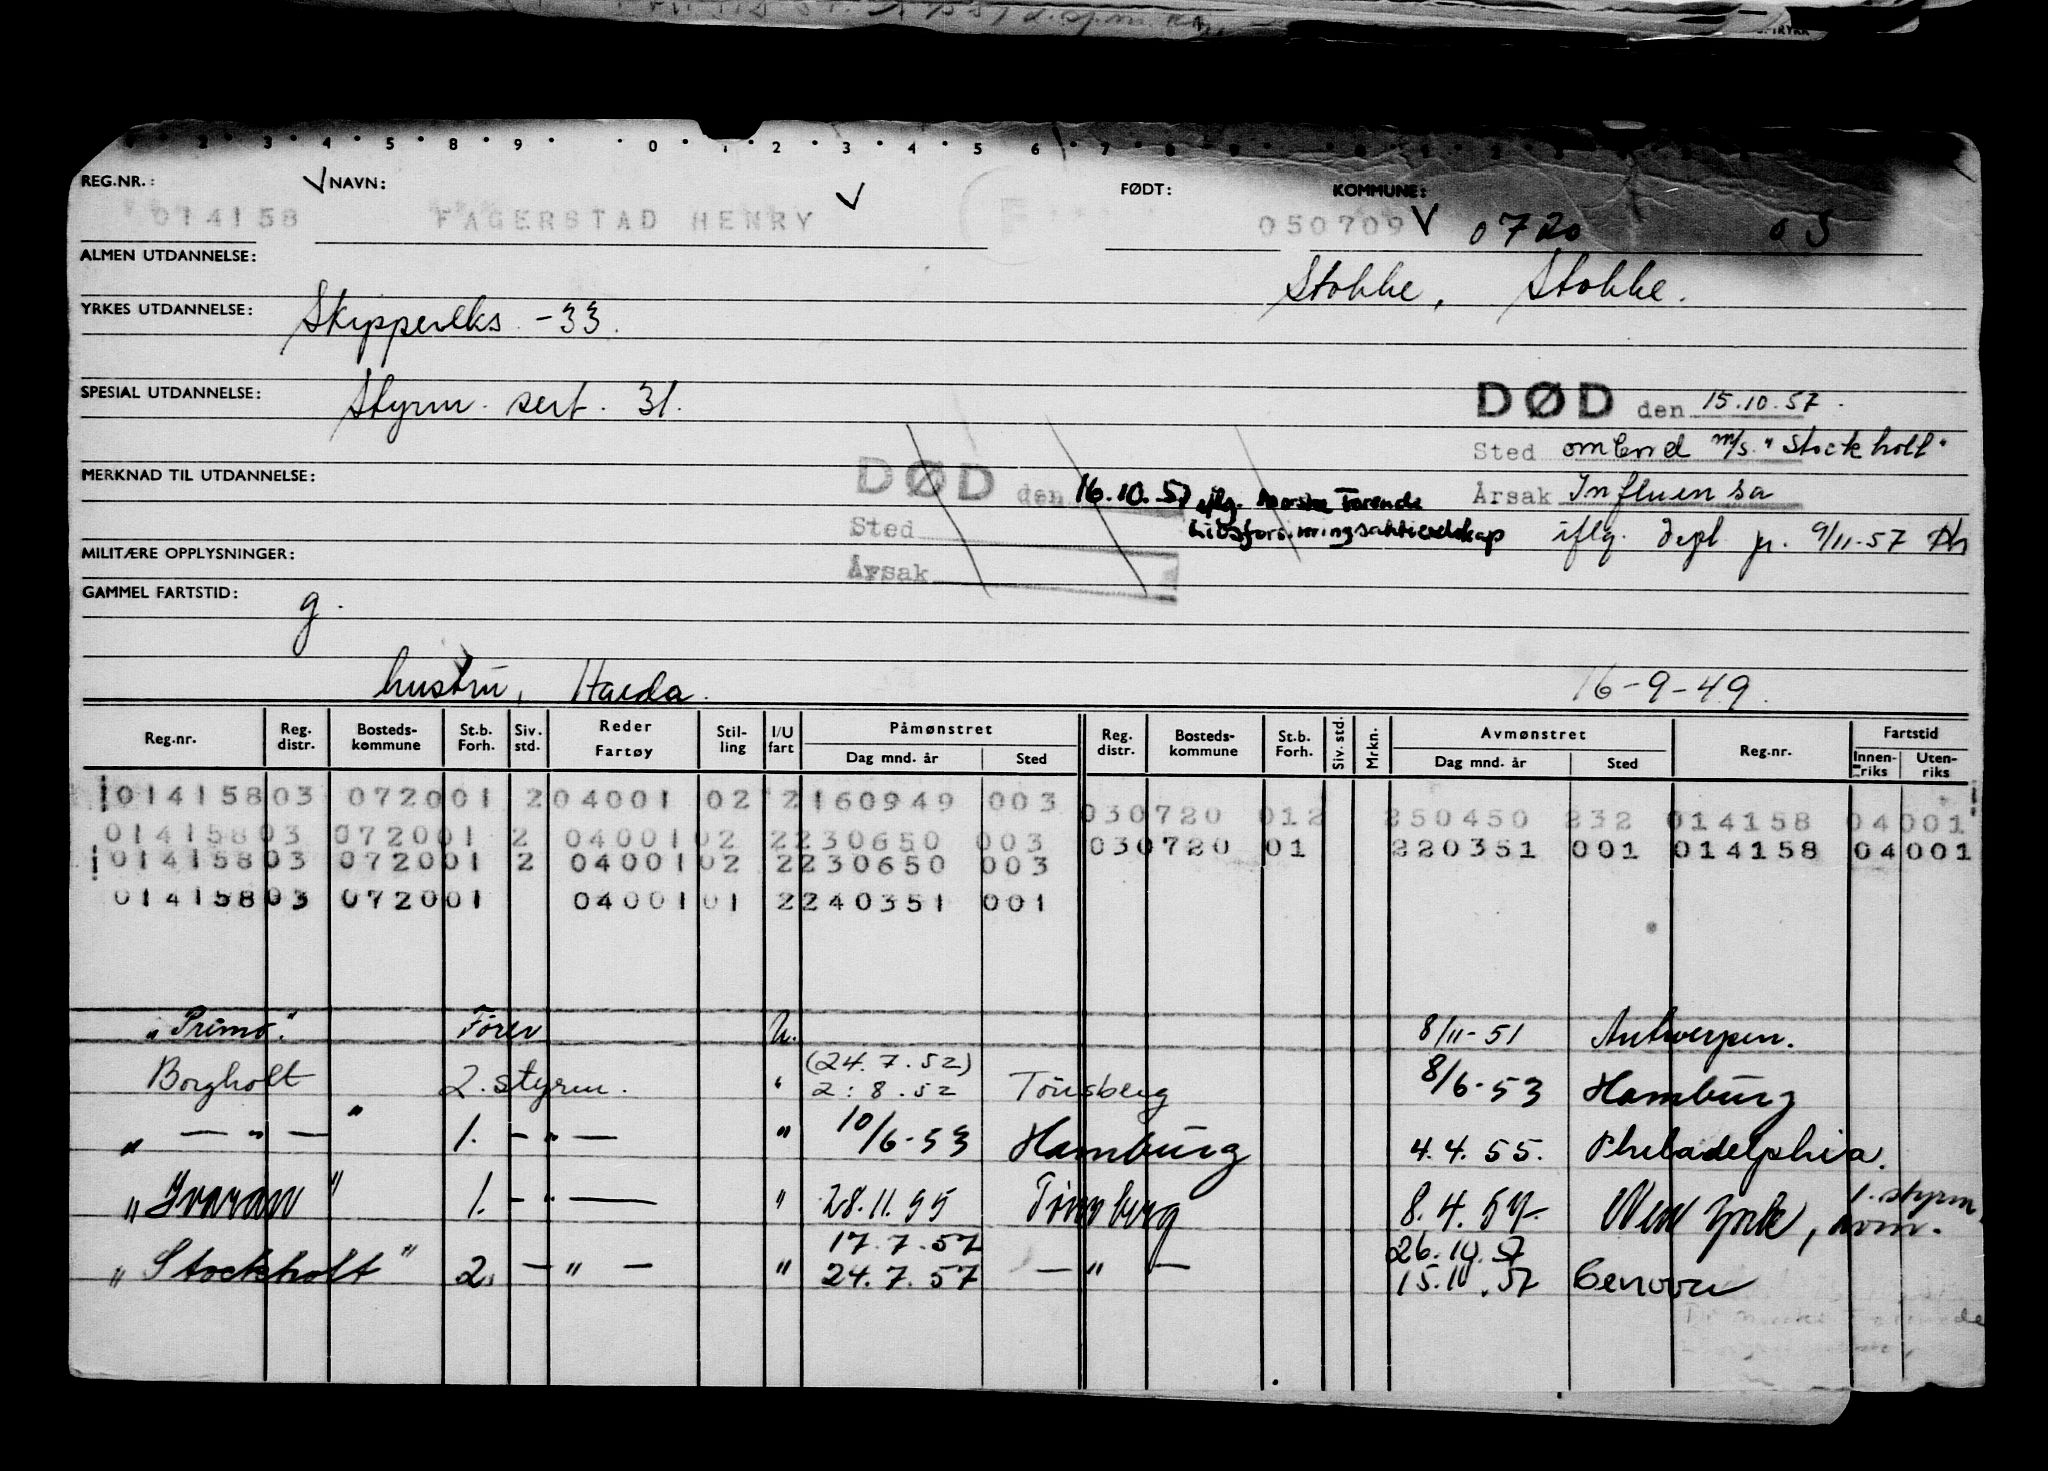 REG.NR.: NAVN: FØDT: KOMMUNE:
014158 FAGERSTAD HENRY 050709 0720 03
ALMEN UTDANNELSE: Stokke, Stokke.
YRKES UTDANNELSE: Skippereks. -33.
SPESIAL UTDANNELSE: Styrm. sert. 31.
DØD den 15.10.57.
Sted ombord m/s. "Stockholt"
MERKNAD TIL UTDANNELSE:
DØD den 16.10.57 iflg. Norske Forende
Livsforsikringsaktieselskap
Sted
Årsak
Årsak Influensa
iflg. Dept. 9/11-57
MILITÆRE OPPLYSNINGER:
GAMMEL FARTSTID: g.
hustru, 16-9-49.
Reg.nr. Reg. distr. Bosteds-kommune St.b. Forh. Siv. std. Reder Fartøy Stil-ling I/U fart Påmønstret Dag mnd. år Sted Reg. distr. Bosteds-kommune St.b. Forh. Siv. std. Mrkn. Avmønstret Dag mnd. år Sted Reg.nr. Fartstid Innen-riks Uten-riks
014158 03 0720 01 2 04001 02 2 160949 003 03 0720 012 250450 232 014158 04001
014158 03 0720 01 2 04001 02 2 230650 003 03 0720 01 220351 001 014158 04001
014158 03 0720 01 2 04001 02 2 230650 003
014158 03 0720 01 04001 01 2 240351 001
"Primo" Fører U. 8/11-51 Antwerpen.
Borgholt 2. styrm. " (24.7.52) 2:8.52 Tønsberg 8/6-53 Hamburg
" — " — " 1. — " — " 10/6-53 Hamburg 4.4.55. Philadelphia.
"Ivaran" 1. — " — " 28.11.55 Tønsberg 8.4.57. New York, 1. styrm.
17.7.57 26.10.57
"Stockholt" 2. — " — " 24.7.57 — " — 15.10.57 Genova